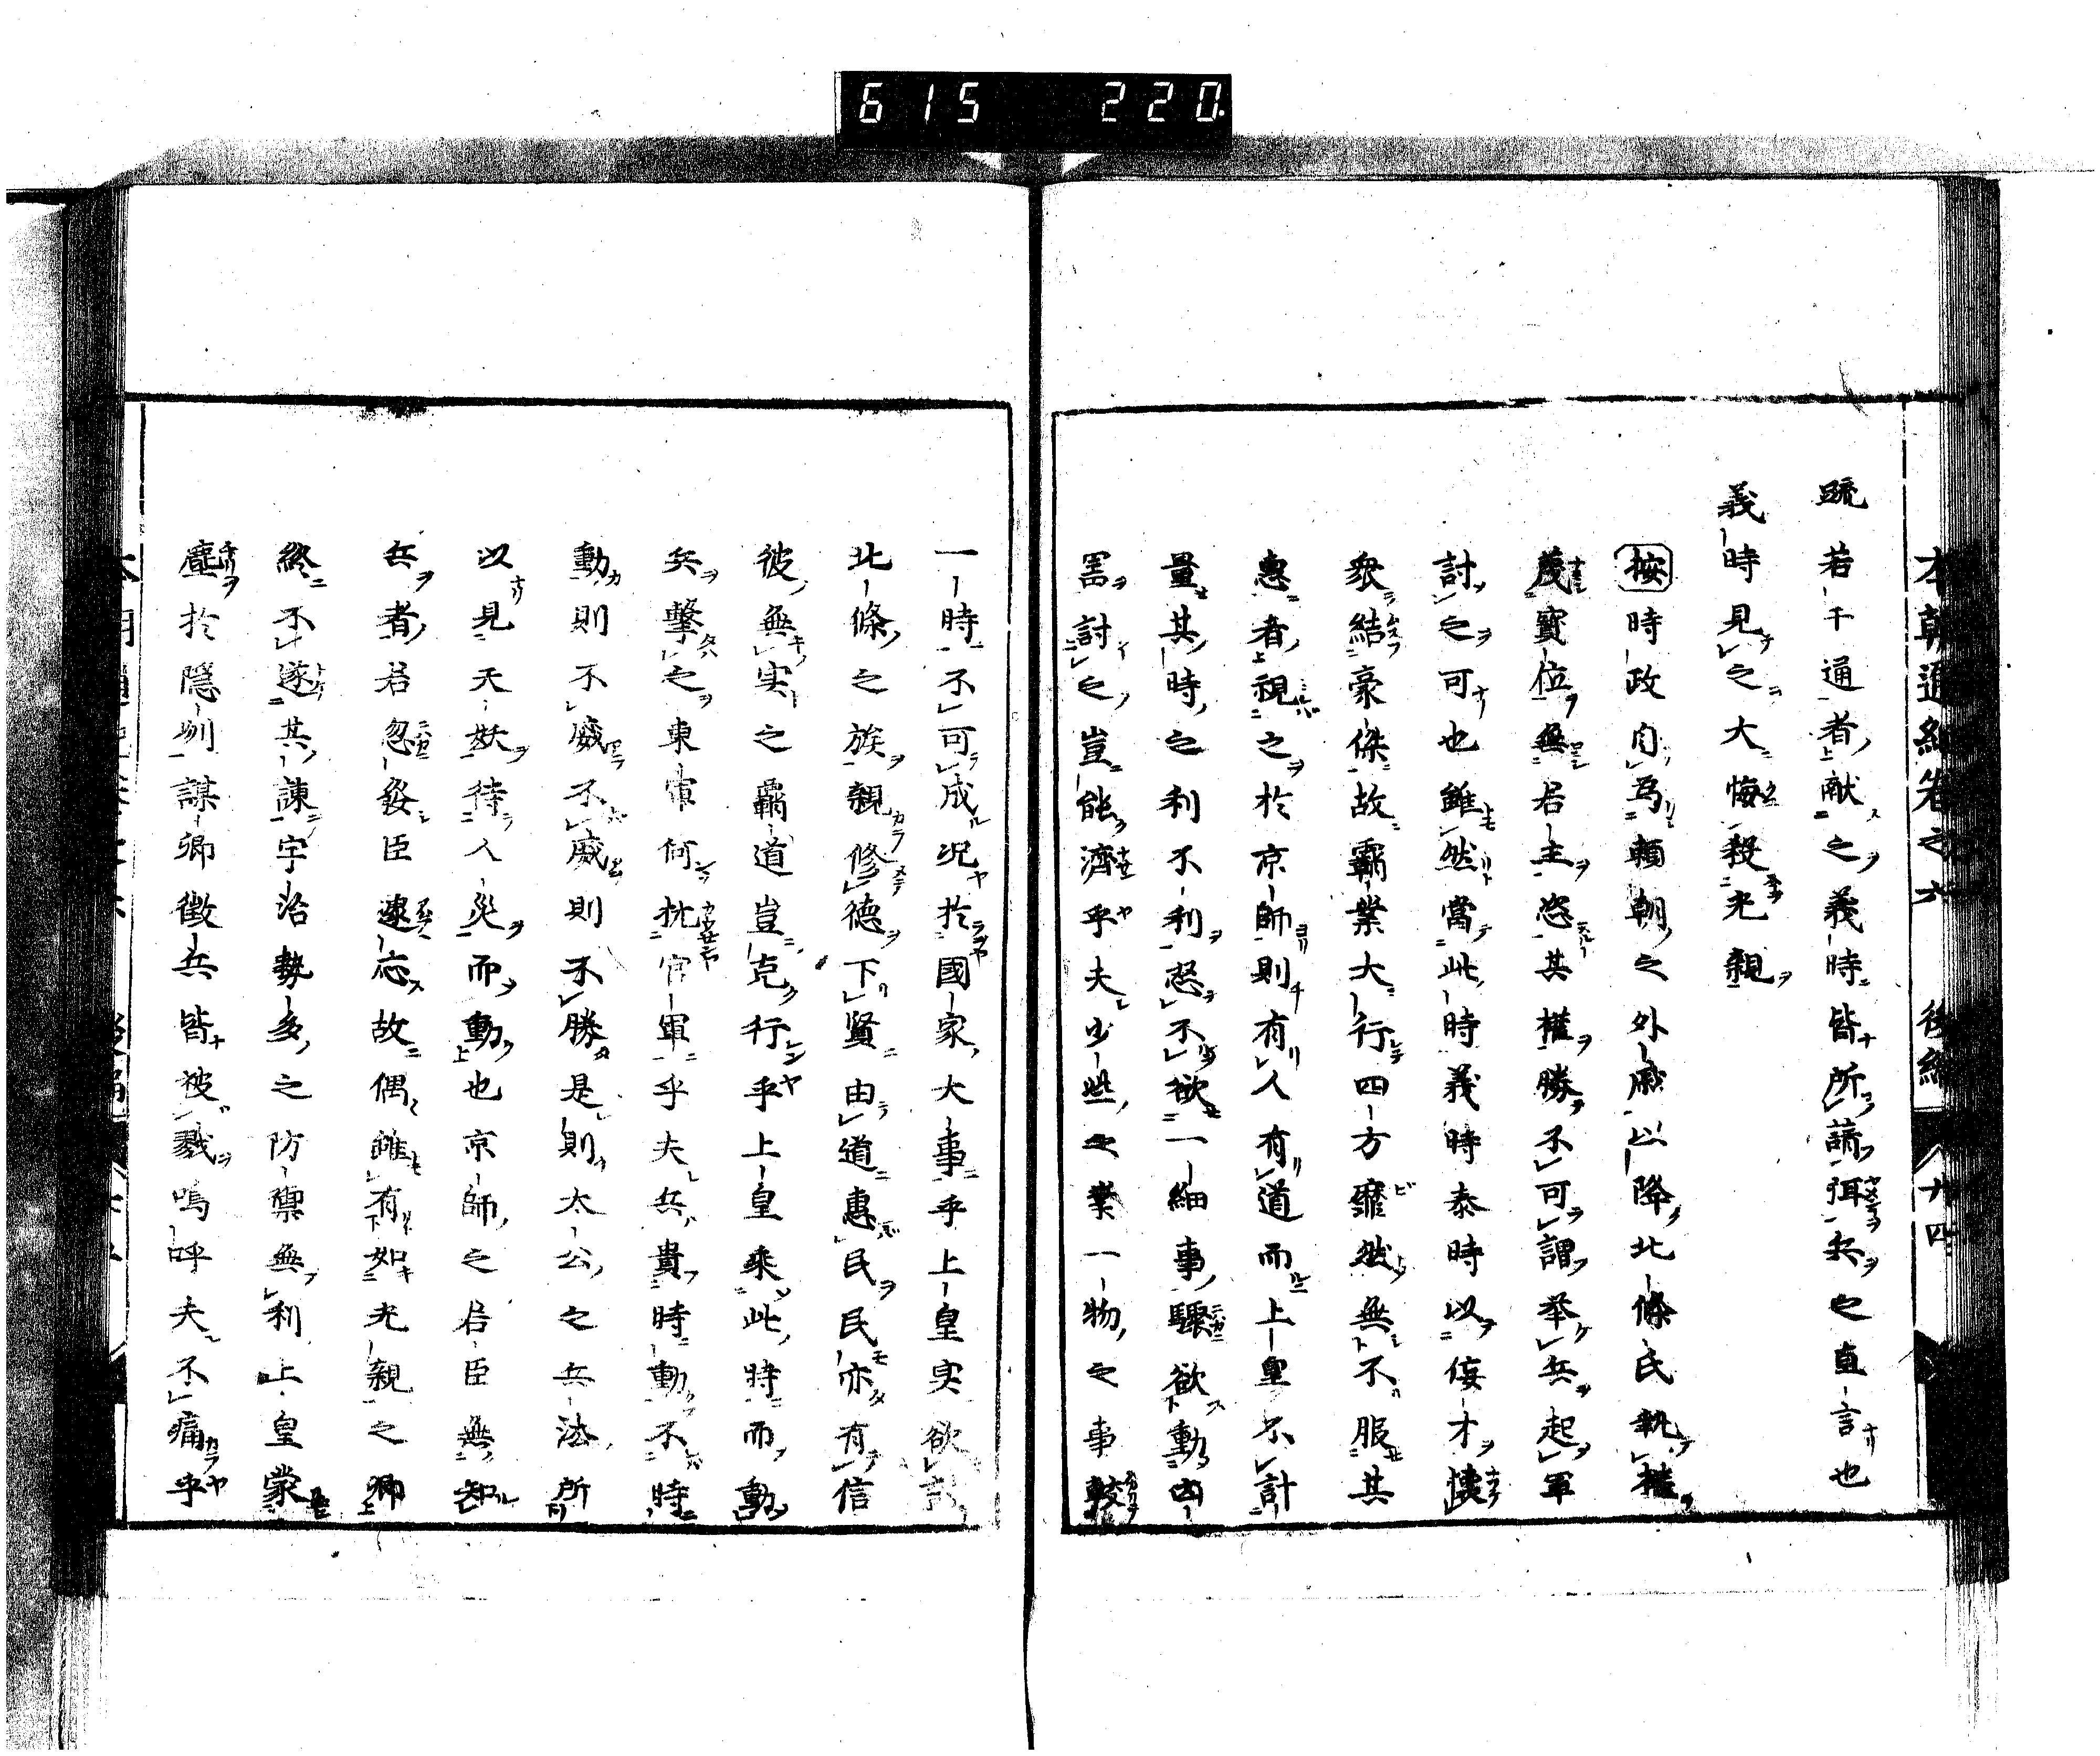 615 220.
本朝通紀卷之六 後編 廿四
疏若干通者献之義時皆所諦弭兵之直言也
義時見之大悔殺光親
按時政自為頼朝之外戚以降北條氏執權
蔑寶位無君主恣其權勝不可謂举兵起軍
討之可也雖然當此時義時泰時以倿才懐
衆結豪傑故覇業大行四方靡然無不服其
惠者視之於京師則有人有道而上皇不計
量其時之利不利忿不欲一細事驟欲動凶
噐討之豈能濟乎夫少些之業一物之事較
一時不可成况於國家大事乎上皇实欲討
北條之族親修德下賢由道惠民民亦有信
彼無实之覇道豈克行乎上皇乗此時而動
兵擊之東軍何抗官軍乎夫兵貴時動不時
動則不威不威則不勝是則太公之兵法所
以見天妖待人災而動也京師之君臣無知
兵者君忽發臣遽応故偶雖有如光親之卿
終不遂其諫宇治勢多之防禦無利上皇蒙
塵於隠州謀卿徴兵皆被戮嗚呼夫不痛乎